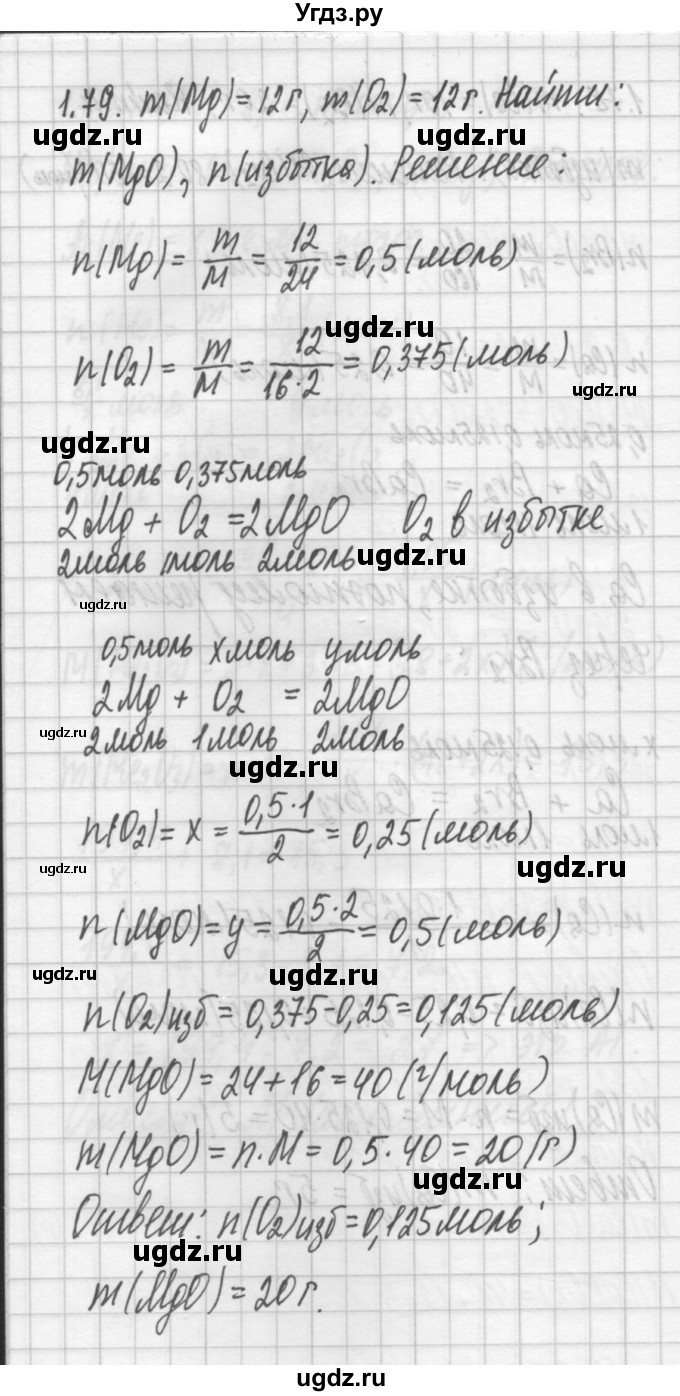 Угдз.ру
1.79. m(Mg)=12г, m(O₂)=12г. Найти:
ugdz.ru ugdz.ru
m(MgO), n(избытка). Решение:
n(Mg) = m/M = 12/24 = 0,5(моль)
ugdz.ru
n(O₂) = m/M = 12/16·2 = 0,375(моль)
ugdz.ru
ugdz.ru
0,5моль 0,375моль
2Mg + O₂ = 2MgO O₂ в избытке
2моль 1моль 2моль
ugdz.ru
ugdz.ru
0,5моль x моль y моль
2Mg + O₂ = 2MgO
ugdz.ru
2моль 1моль 2моль
ugdz.ru
n(O₂) = x = 0,5·1/2 = 0,25(моль)
ugdz.ru ugdz.ru
n(MgO) = y = 0,5·2/2 = 0,5(моль)
ugdz.ru ugdz.ru
n(O₂)изб = 0,375-0,25=0,125(моль)
M(MgO) = 24+16=40(г/моль)
m(MgO) = n·M = 0,5·40 = 20(г)
ugdz.ru
Ответ: n(O₂)изб=0,125моль;
ugdz.ru
m(MgO) = 20г.
ugdz.ru